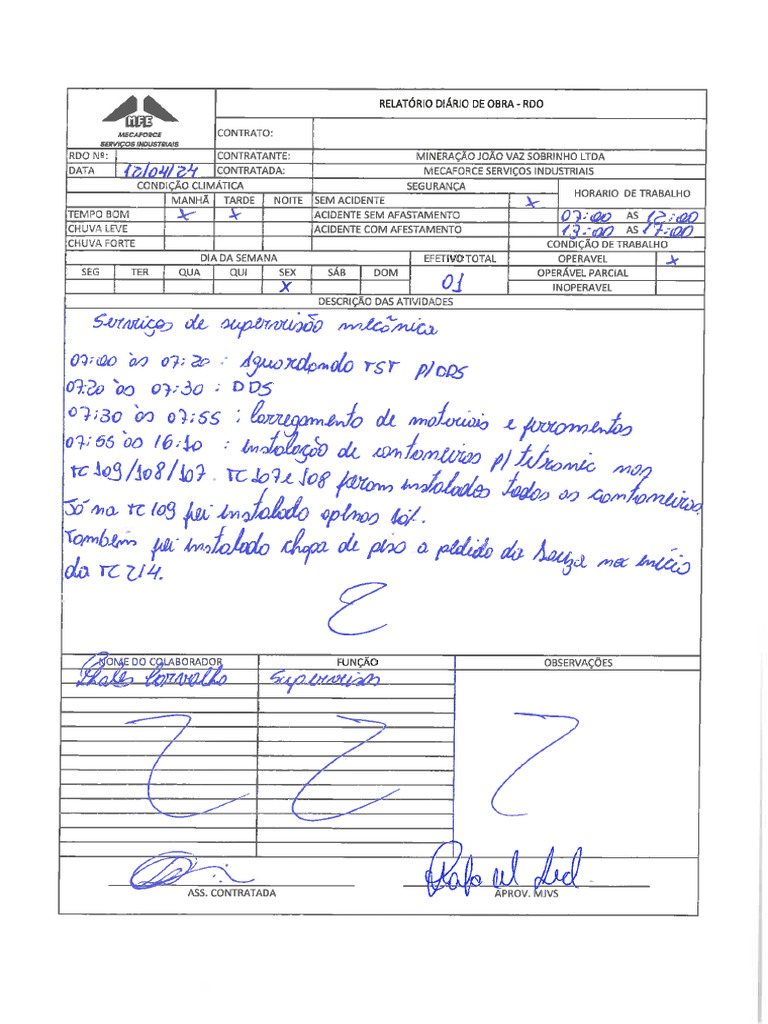 MFE
MECAFORCE
SERVIÇOS INDUSTRIAIS
RELATÓRIO DIÁRIO DE OBRA - RDO
CONTRATO:
RDO Nº:
CONTRATANTE: MINERAÇÃO JOÃO VAZ SOBRINHO LTDA
DATA 12/04/24 CONTRATADA: MECAFORCE SERVIÇOS INDUSTRIAIS
CONDIÇÃO CLIMÁTICA SEGURANÇA HORARIO DE TRABALHO
MANHÃ TARDE NOITE SEM ACIDENTE x
TEMPO BOM x x ACIDENTE SEM AFASTAMENTO 07:00 AS 12:00
CHUVA LEVE ACIDENTE COM AFESTAMENTO 13:00 AS 17:00
CHUVA FORTE CONDIÇÃO DE TRABALHO
DIA DA SEMANA EFETIVO TOTAL OPERAVEL x
SEG TER QUA QUI SEX SÁB DOM 01 OPERÁVEL PARCIAL
x INOPERAVEL
DESCRIÇÃO DAS ATIVIDADES
Serviços de supervisão mecânica
07:00 às 07:20 : Aguardando TST p/ DDS
07:20 às 07:30 : DDS
07:30 às 07:55 : Carregamento de materiais e ferramentas
07:55 às 16:10 : instalação de cantoneiras p/ tetronic nas
TC 109/108/107. TC 107 e 108 foram instalados todas as cantoneiras.
Só na TC 109 foi instalado apenas
Também foi instalado chapa de piso a pedido da Souza no início
da TC 214.
NOME DO COLABORADOR FUNÇÃO OBSERVAÇÕES
Thales Carvalho Supervisor
ASS. CONTRATADA
Rafael
APROV. MJVS